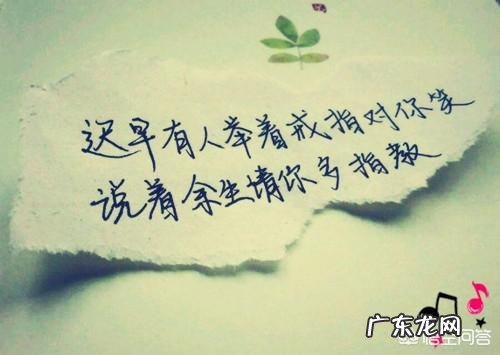 迟早有人举着戒指对你笑
说着余生请你多指教
广东龙网
悟空问答